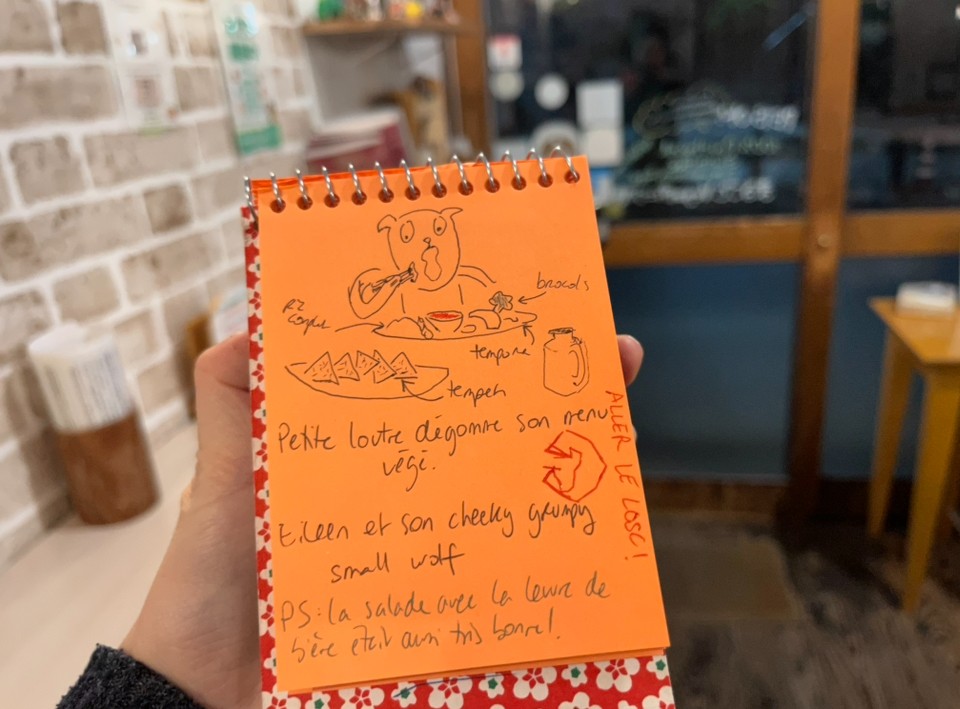 brocolis
Riz
complet
tempura
tempeh
Petite loutre dégomme son menu
végé.
ALLER LE LOSC!
Eileen et son cheeky grumpy
small wolf
PS: la salade avec la levure de
bière était aussi très bonne!